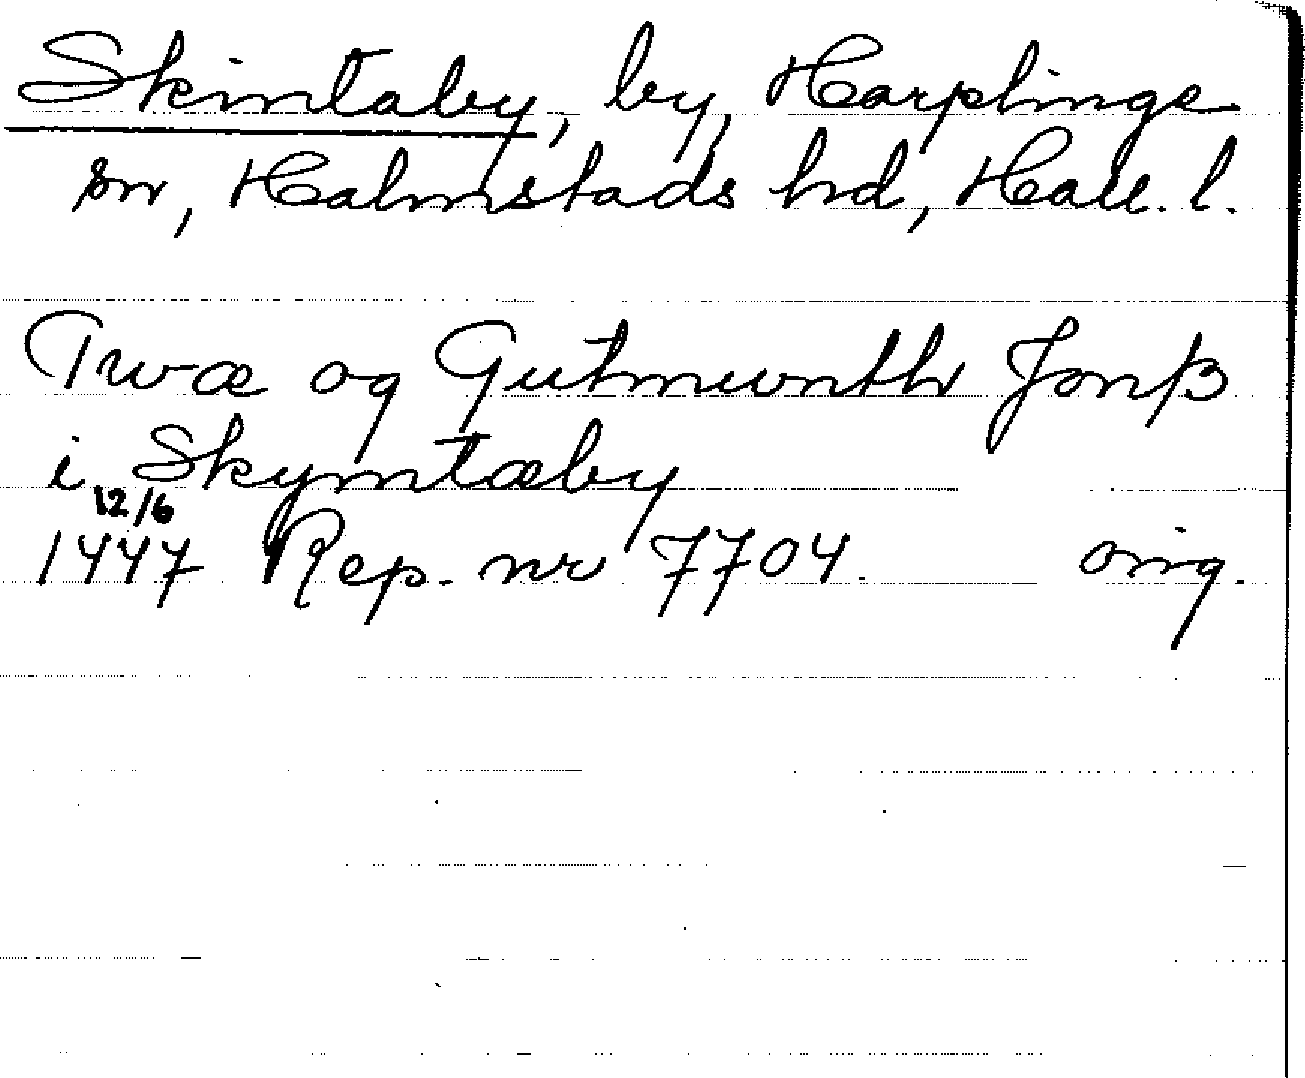 Skintaby, by, Harplinge
sn, Halmstads hd, Hall. l.
Twæ og Gutmwnth Jonß
i Skyntæby
12/6
1447 Rep. nr 7704. orig.